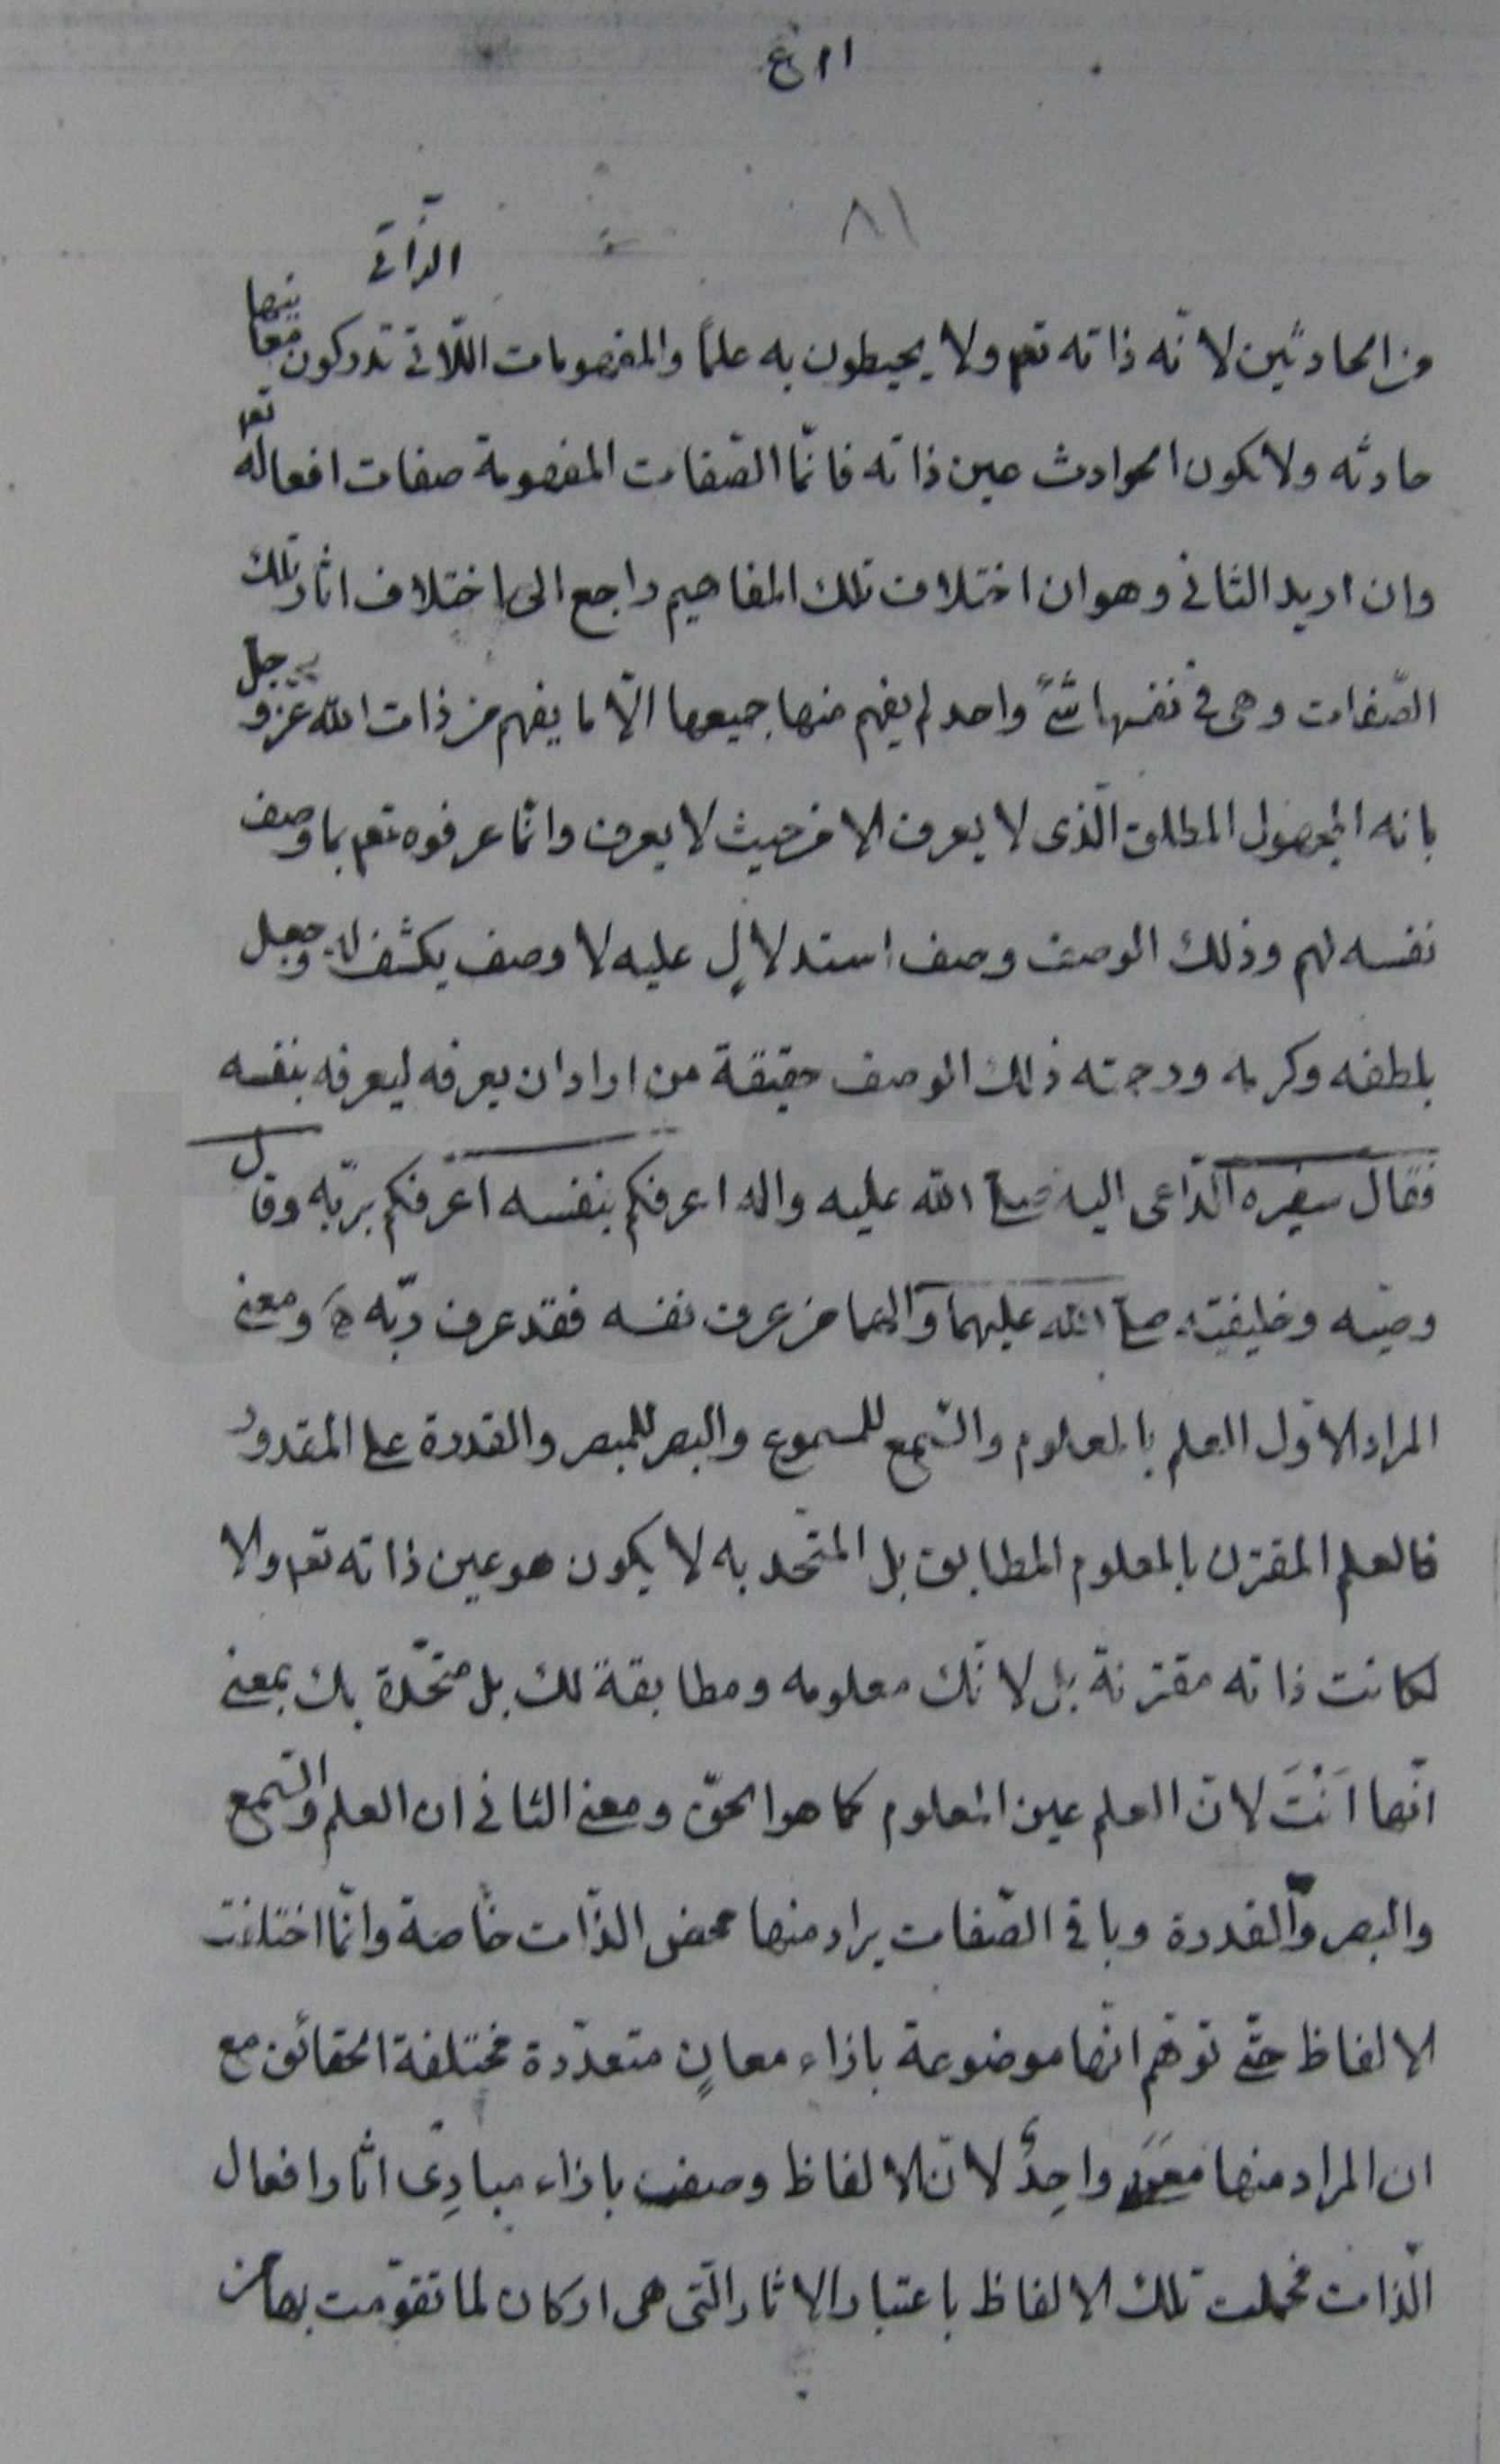 ٨١
الذاتى
من الحادثين لانّه ذاته تعم ولا يحيطون به علماً والمفهومات اللّاتى تدركون معانيها
حادثه ولا يكون الحوادث عين ذاته فانّما الصّفات المفهومة صفات افعاله تعم
وان اريد الثانى وهو ان اختلاف تلك المفاهيم راجع الى اختلاف اثار تلك
الصّفات وهى فى نفسها شىءٌ واحد لم يفهم منها جميعها الّا ما يفهم من ذات الله عزّ وجل
بانه المجهول المطلق الّذى لا يعرف الا من حيث لا يعرف وانّما عرفوه تعم بما وصف
نفسه لهم وذلك الوصف وصف استدلالٍ عليه لا وصف يكشف له وجعل
بلطفه وكرمه ورحمته ذلك الوصف حقيقة من اراد ان يعرفه ليعرفه بنفسه
فقال سفيره الدّاعى اليه صلى الله عليه واله اعرفكم بنفسه اعرفكم بربّه وقال
وصيّه وخليفته صلى الله عليهما وآلهما من عرف نفسه فقد عرف ربّه ومعنى
المراد الاوّل العلم بالمعلوم والسّمع للمسموع والبصر للمبصر والقدرة على المقدور
فالعلم المقترن بالمعلوم المطابق بل المتّحد به لا يكون هو عين ذاته تعم والا
لكانت ذاته مقترنة بل لانّك معلومه ومطابقة لك بل متّحدة بك بمعنى
انّها اَنْتَ لانّ العلم عين المعلوم كما هو الحقّ ومعنى الثانى ان العلم والسّمع
والبصر والقدرة وباقى الصّفات يراد منها محض الذّات خاصة وانّما اختلفت
الالفاظ حتّى توهّم انّها موضوعة بازاء معانٍ متعدّدة مختلفة الحقائق مع
ان المراد منها معنى واحِدٌ لانّ الالفاظ وصفت بازاء مبادِى اثار افعال
الّذات فحملت تلك الالفاظ باعتبار الاثار الّتى هى اركان لما تقوّمت بها من